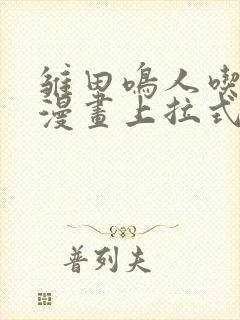 雏田鳴人喫
漫畫上拉式
普列夫